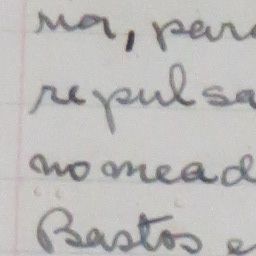 ma, para
repulsa
nomead
Bastos e